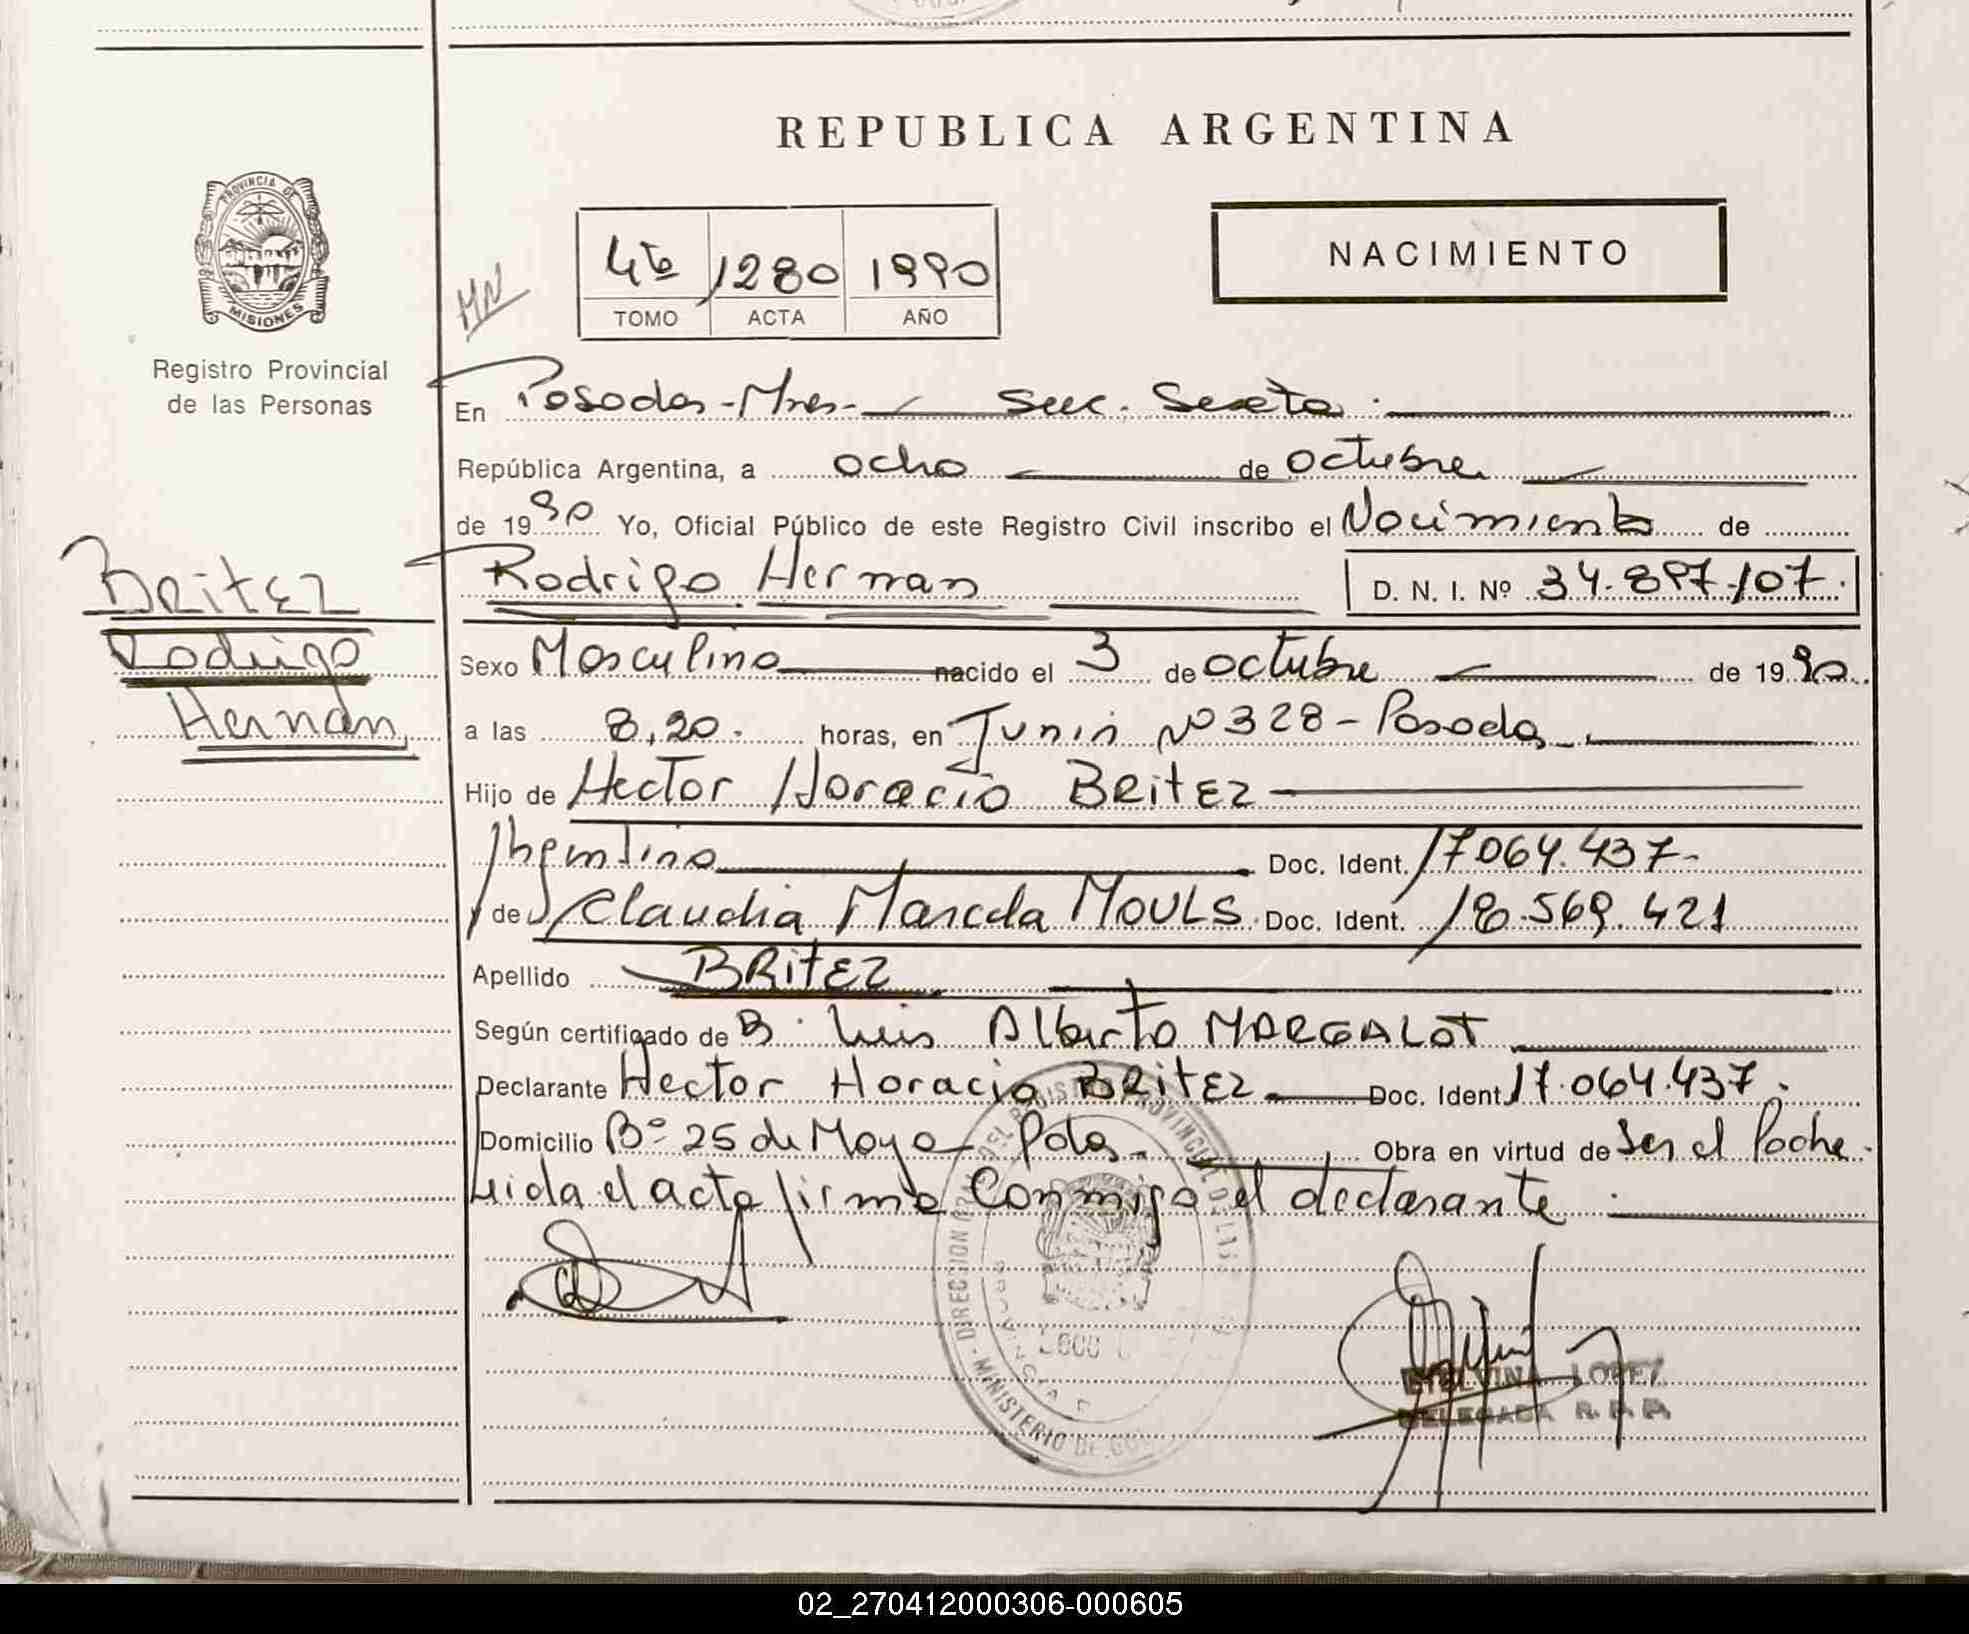 REPUBLICA ARGENTINA
PROVINCIA DE
MISIONES
Registro Provincial
de las Personas
NACIMIENTO
4to 1280 1990
TOMO ACTA AÑO
HN
En Posadas-Mnes- Secc. Sexta.
República Argentina, a ocho de octubre
de 1990 Yo, Oficial Público de este Registro Civil inscribo el Nacimiento de
BRITEZ
Rodrigo Hernan D. N. I. Nº 34.897.107.
Rodrigo
Hernan,
Sexo Masculino nacido el 3 de octubre de 1990.
a las 8,20. horas, en Junin Nº 328 - Posadas.
Hijo de Hector Horacio BRITEZ
Argentino Doc. Ident. 17064.437-
y de Claudia Marcela MOULS. Doc. Ident. 18.569.421
Apellido BRITEZ
Según certificado de Luis Alberto MARGALOT
Declarante Hector Horacio BRITEZ Doc. Ident. 17.064.437.
Domicilio Bº 25 de Mayo Pdas. Obra en virtud de ser el Padre.
Leida el acta firma conmigo el declarante.
DIRECCION DEL REGISTRO PROVINCIAL DE LAS
MINISTERIO DE GOB
ETELVINA LOPEZ
DELEGADA R.P.P.
02_270412000306-000605